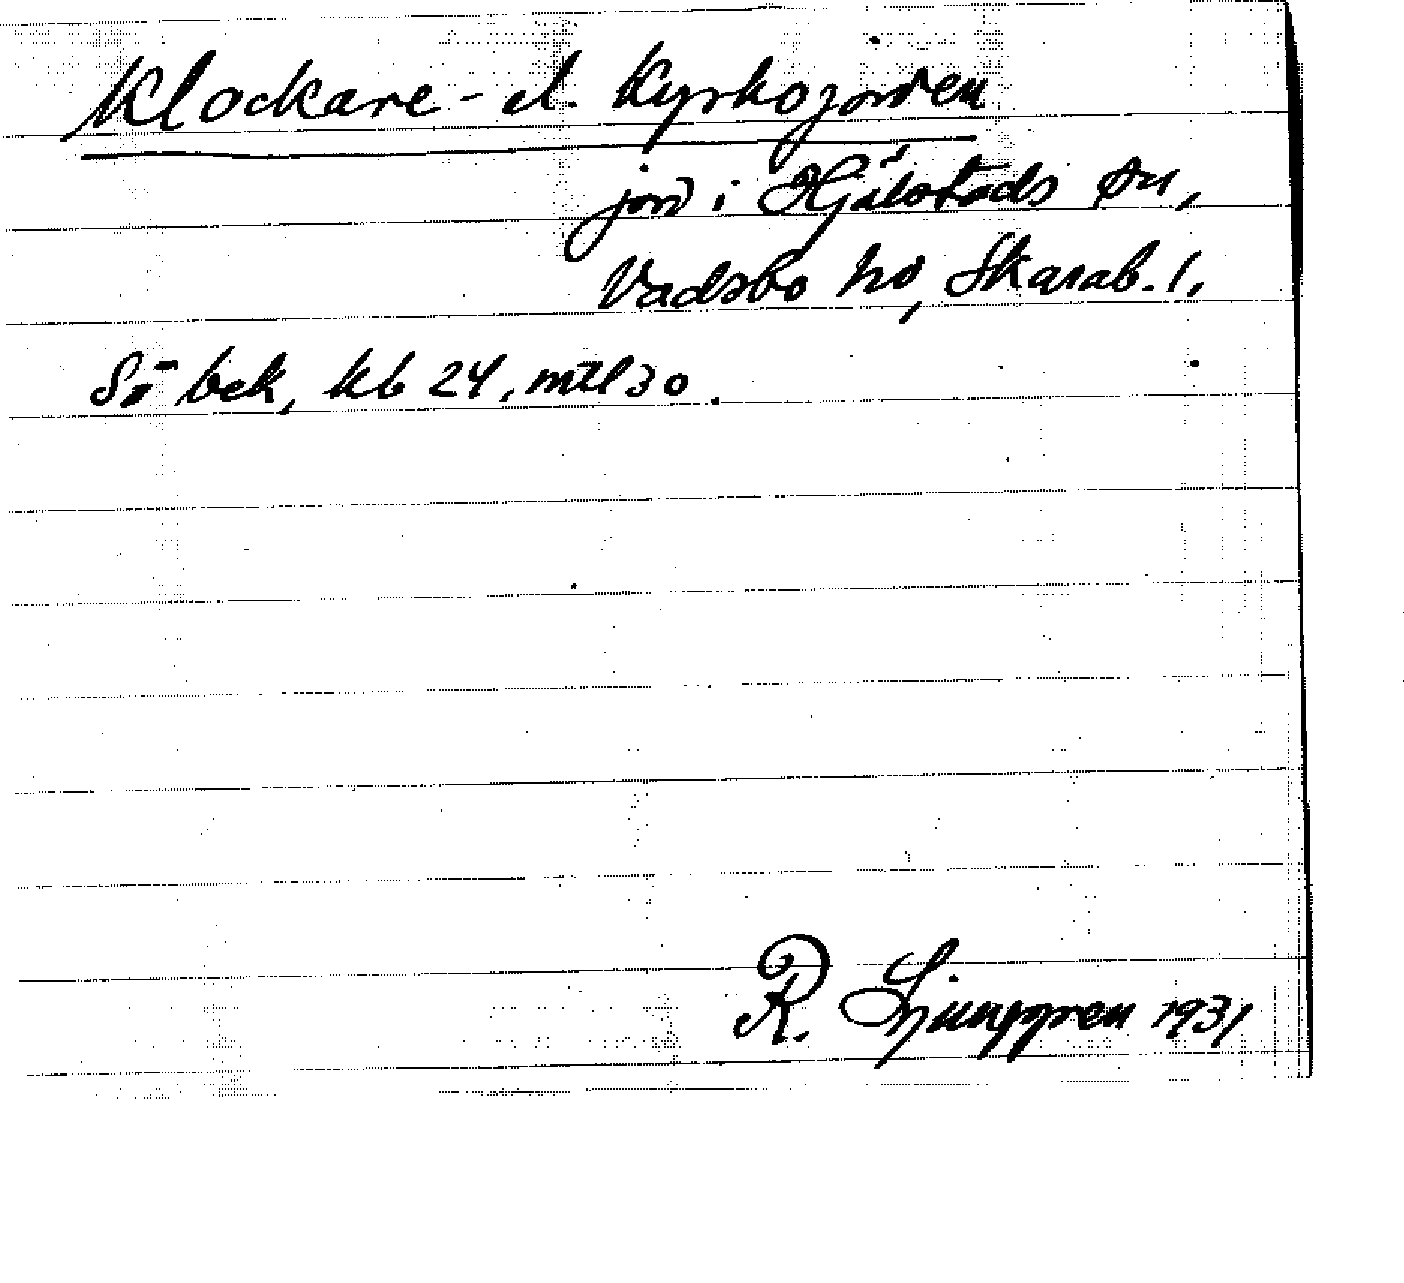 Klockare- el. Kyrkojorden
jord i Hjälstads sn,
Vadsbo hd, Skarab. l.
Sö bek, kb 24, mtl 30.
R. Ljunggren 1931